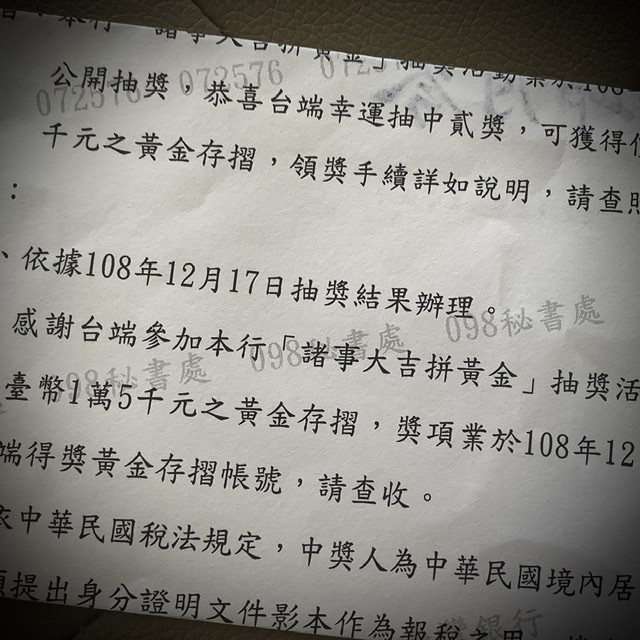 本行「諸事大吉拼黃金」抽獎活動業於108
公開抽獎，恭喜台端幸運抽中貳獎，可獲得
千元之黃金存摺，領獎手續詳如說明，請查照
：
、依據108年12月17日抽獎結果辦理。
感謝台端參加本行「諸事大吉拼黃金」抽獎活
臺幣1萬5千元之黃金存摺，獎項業於108年12
端得獎黃金存摺帳號，請查收。
依中華民國稅法規定，中獎人為中華民國境內居
須提出身分證明文件影本作為報稅
072576 072576 072
098秘書處 098秘書處 098秘書處
銀行